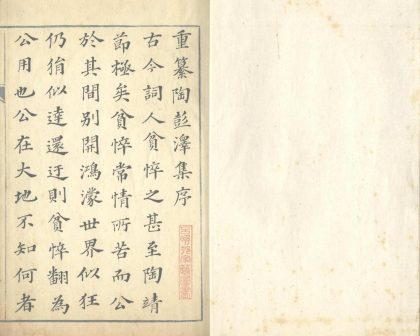 重纂陶彭澤集序
古今詞人貧悴之甚至陶靖
節極矣貧悴常情所苦而公
於其間別開鴻濛世界似狂
仍狷似達還迂則貧悴翻為
公用也公在大地不知何者